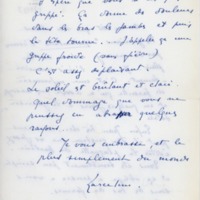 grippé. Ça donne des douleurs
dans les bras les jambes et puis
la tête tourne... J'appelle ça une
grippe froide (sans fièvre).
C'est assez déplaisant.
Le soleil est brûlant et clair.
Quel dommage que vous ne
puissiez en attraper quelques
rayons.
Je vous embrasse, et le
plus simplement du monde